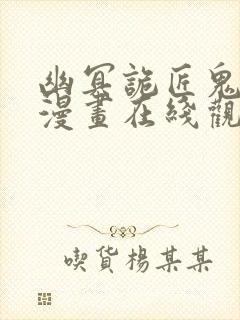 幽冥詭匠鬼
漫畫在綫觀
喫貨楊某某